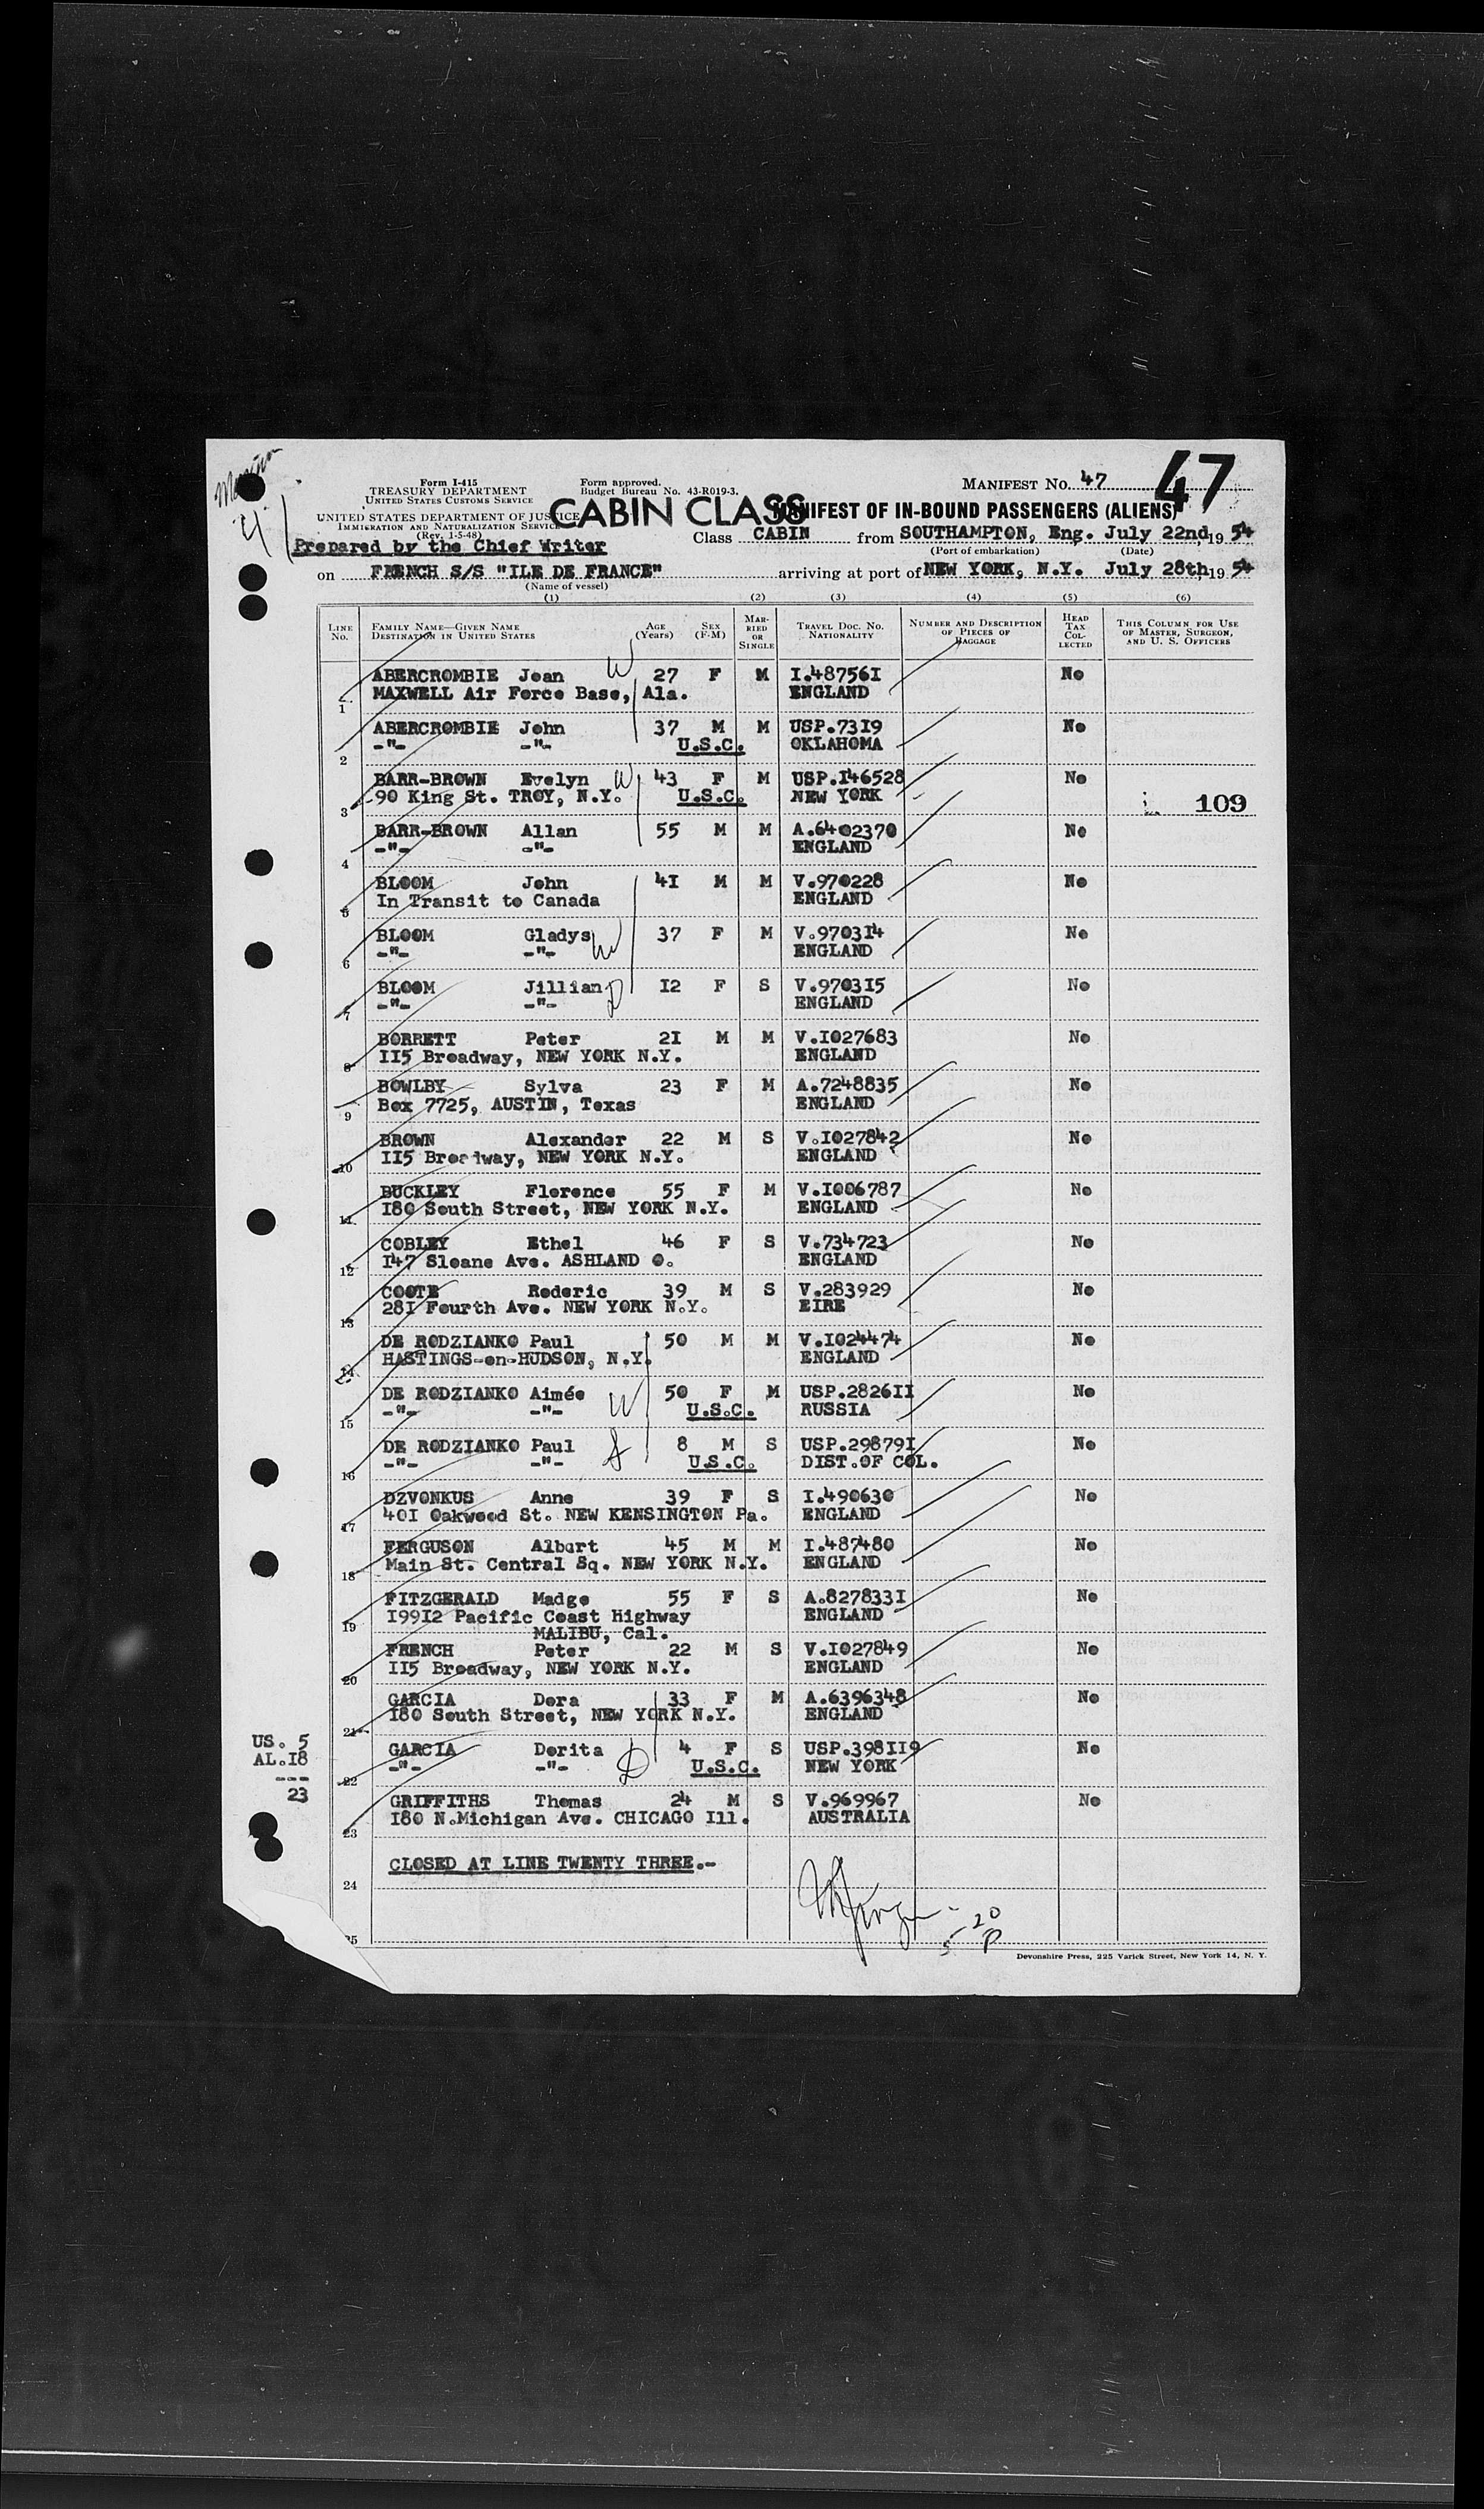 47
Form I-415
TREASURY DEPARTMENT
UNITED STATES CUSTOMS SERVICE
Form approved.
Budget Bureau No. 43-R019-3.
MANIFEST No. 47
UNITED STATES DEPARTMENT OF JUSTICE
IMMIGRATION AND NATURALIZATION SERVICE
(Rev. 1-5-48)
CABIN CLASS
MANIFEST OF IN-BOUND PASSENGERS (ALIENS)
Prepared by the Chief Writer
Class CABIN from SOUTHAMPTON, Eng. July 22nd, 19 54
(Port of embarkation) (Date)
on FRENCH S/S "ILE DE FRANCE" arriving at port of NEW YORK, N.Y. July 28th 19 54
(Name of vessel)
(1) (2) (3) (4) (5) (6)
LINE No. FAMILY NAME—GIVEN NAME DESTINATION IN UNITED STATES AGE (Years) SEX (F-M) MARRIED OR SINGLE TRAVEL DOC. NO. NATIONALITY NUMBER AND DESCRIPTION OF PIECES OF BAGGAGE HEAD TAX COLLECTED THIS COLUMN FOR USE OF MASTER, SURGEON, AND U. S. OFFICERS
ABERCROMBIE Jean W 27 F M I.487561 No
1 MAXWELL Air Force Base, Ala. ENGLAND
ABERCROMBIE John 37 M M USP.7319 No
2 -"- -"- U.S.C. OKLAHOMA
BARR-BROWN Evelyn W 43 F M USP.146528 No
3 90 King St. TROY, N.Y. U.S.C. NEW YORK 109
BARR-BROWN Allan 55 M M A.6402370 No
4 -"- -"- ENGLAND
BLOOM John 41 M M V.970228 No
5 In Transit to Canada ENGLAND
BLOOM Gladys W 37 F M V.970314 No
6 -"- -"- ENGLAND
BLOOM Jillian D 12 F S V.970315 No
7 -"- -"- ENGLAND
BORRETT Peter 21 M M V.1027683 No
8 115 Broadway, NEW YORK N.Y. ENGLAND
BOWLBY Sylva 23 F M A.7248835 No
9 Box 7725, AUSTIN, Texas ENGLAND
BROWN Alexander 22 M S V.1027842 No
10 115 Broadway, NEW YORK N.Y. ENGLAND
BUCKLEY Florence 55 F M V.1006787 No
11 180 South Street, NEW YORK N.Y. ENGLAND
COBLEY Ethel 46 F S V.734723 No
12 147 Sloane Ave. ASHLAND O. ENGLAND
COOTE Roderic 39 M S V.283929 No
13 281 Fourth Ave. NEW YORK N.Y. EIRE
DE RODZIANKO Paul 50 M M V.1024474 No
14 HASTINGS-on-HUDSON, N.Y. ENGLAND
DE RODZIANKO Aimée W 50 F M USP.282611 No
15 -"- -"- U.S.C. RUSSIA
DE RODZIANKO Paul S 8 M S USP.298791 No
16 -"- -"- U.S.C. DIST.OF COL.
DZVONKUS Anne 39 F S I.490630 No
17 401 Oakwood St. NEW KENSINGTON Pa. ENGLAND
FERGUSON Albart 45 M M I.487480 No
18 Main St. Central Sq. NEW YORK N.Y. ENGLAND
FITZGERALD Madge 55 F S A.8278331 No
19 19912 Pacific Coast Highway ENGLAND
MALIBU, Cal.
FRENCH Peter 22 M S V.1027849 No
20 115 Broadway, NEW YORK N.Y. ENGLAND
GARCIA Dora 33 F M A.6396348 No
21 180 South Street, NEW YORK N.Y. ENGLAND
GARCIA Dorita D 4 F S USP.398119 No
22 -"- -"- U.S.C. NEW YORK
GRIFFITHS Thomas 24 M S V.969967 No
23 180 N.Michigan Ave. CHICAGO Ill. AUSTRALIA
US. 5
AL.18
---
23
CLOSED AT LINE TWENTY THREE.-
24
25
5 20 P
Devonshire Press, 225 Varick Street, New York 14, N. Y.